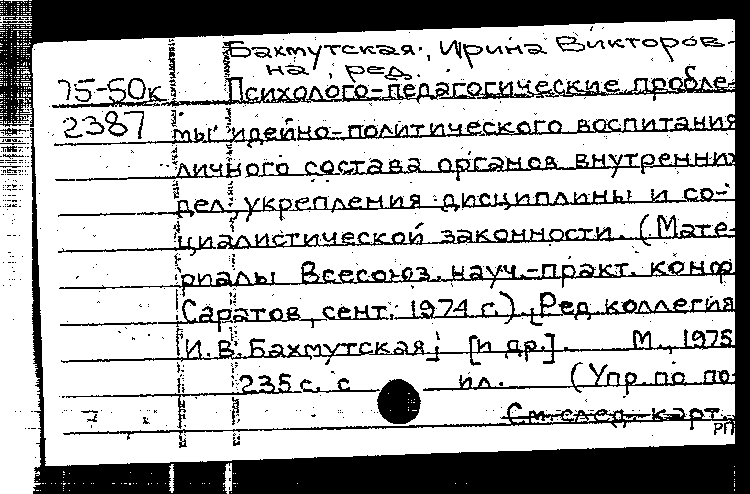 Бахмутская, Ирина Викторов-
на, ред.
75-50к Психолого-педагогические пробле-
2387 мы идейно-политического воспитания
личного состава органов внутренних
дел, укрепления дисциплины и со-
циалистической законности. (Мате-
риалы Всесоюз. науч.-практ. конф
Саратов, сент. 1974 г.) [Ред. коллегия
И. В. Бахмутская; [и др.]. М., 1975
235 с. с ил. (Упр. по по
См. след. карт.
РП